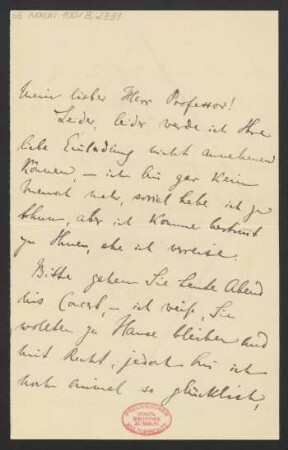 Mein lieber Herr Professor!
Leider, leider werde ich Ihre
liebe Einladung nicht annehmen
können, – ich bin gar kein
Mensch mehr, soviel habe ich zu
thun, aber ich komme bestimmt
zu Ihnen, ehe ich verreise.
Bitte gehen Sie heute Abend
ins Concert, – ich weiß, Sie
wollten zu Hause bleiben und
mit Recht, jedoch bin ich
noch einmal so glücklich,